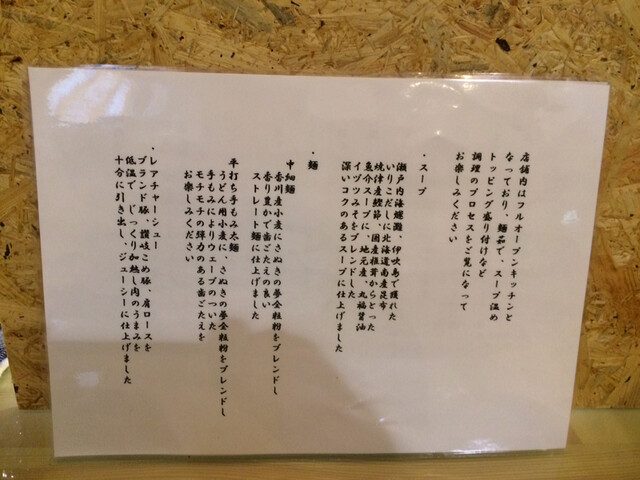 店舗内はフルオープンキッチンと
なっており、麺茹で、スープ温め
トッピング盛り付けなど
調理のプロセスをご覧になって
お楽しみください
・スープ
瀬戸内海燧灘、伊吹島で獲れた
いりこだしに北海道南産昆布
焼津産鰹節、国産椎茸からとった
魚介スープに、地元産、丸福醤油
イヅツみそをブレンドした
深いコクのあるスープに仕上げました
・麺
中細麺
香川産小麦にさぬきの夢全粒粉をブレンドし
香り豊かで歯ごたえの良い
ストレート麺に仕上げました
平打ち手もみ太麺
うどん用小麦に、さぬきの夢全粒粉をブレンドし
手もみによりウェーブのついた
モチモチの弾力のある歯ごたえを
お楽しみください
・レアチャーシュー
ブランド豚、讃岐こめ豚、肩ロースを
低温で じっくり加熱し肉のうまみを
十分に引き出し、ジューシーに仕上げました